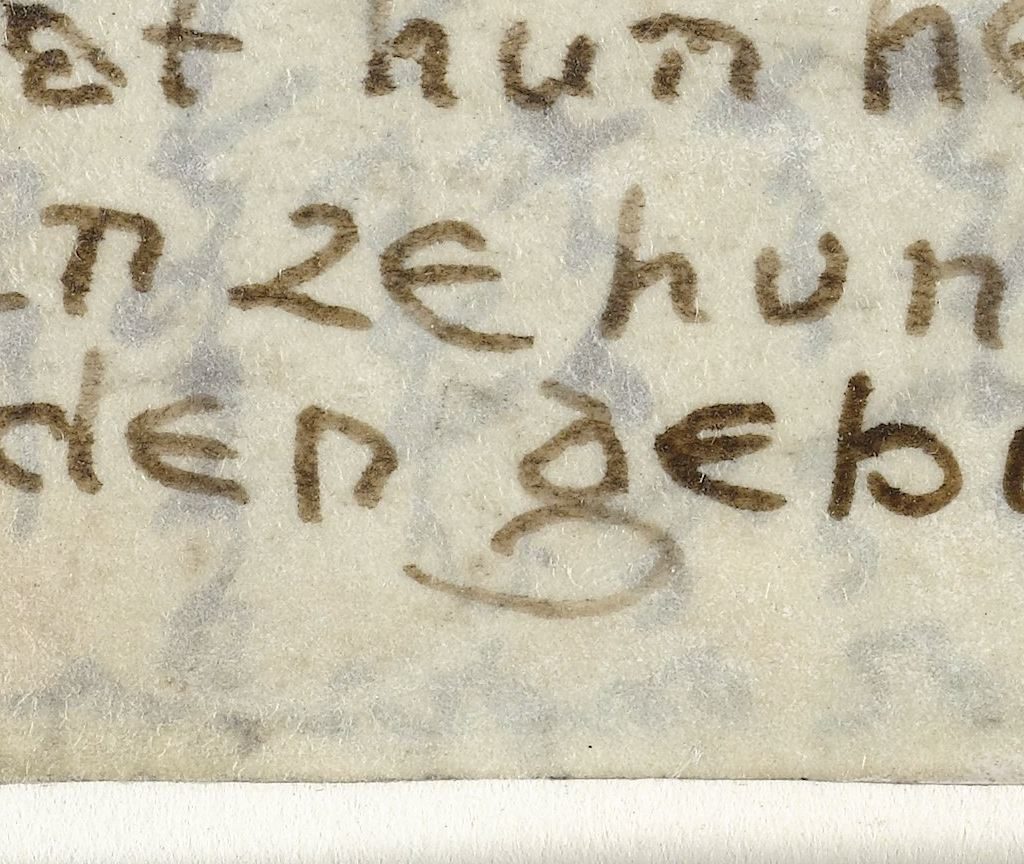 et hun he
n ze hun
den geb